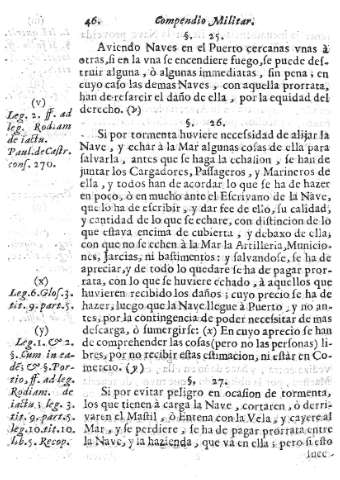 46. Compendio Militar.
§. 25.
Aviendo Naves en el Puerto cercanas vnas à
otras, ſi en la vna ſe encendiere fuego, ſe puede deſ-
truir alguna, ò algunas immediatas, ſin pena; en
cuyo caſo las demas Naves, con aquella prorrata,
han de reſarcir el daño de ella, por la equidad del
derecho. (v)
§. 26.
Si por tormenta huviere neceſsidad de alijar la
Nave, y echar à la Mar algunas coſas de ella para
ſalvarla, antes que ſe haga la echaſion, ſe han de
juntar los Cargadores, Paſſageros, y Marineros de
ella, y todos han de acordar lo que ſe ha de hazer
en poco, ò en mucho ante el Eſcrivano de la Nave,
que lo ha de eſcribir, y dar fee de ello, ſu calidad,
y cantidad de lo que ſe echare, con diſtincion de lo
que eſtava encima de cubierta, y debaxo de ella;
con que no ſe echen à la Mar la Artilleria, Municio-
nes, Jarcias, ni baſtimentos: y ſalvandoſe, ſe ha de
apreciar, y de todo lo quedare ſe ha de pagar pror-
rata, con lo que ſe huviere echado, à aquellos que
huvieren recibido los daños; cuyo precio ſe ha de
hazer, luego que la Nave llegue à Puerto, y no an-
tes, por la contingencia de poder neceſsitar de mas
deſcarga, ò ſumergirſe: (x) En cuyo aprecio ſe han
de comprehender las coſas (pero no las perſonas) li-
bres, por no recibir eſtas eſtimacion, ni eſtàr en Co-
mercio. (y)
§. 27.
Si por evitar peligro en ocaſion de tormenta,
los que tienen à carga la Nave, cortaren, ò derri-
varen el Maſtil, ò Entena con la Vela, y cayere al
Mar, y ſe perdiere, ſe ha de pagar prorrata entre
la Nave, y la hazienda, que và en ella; pero ſi eſto
ſuce-
(v)
Leg. 2. ff. ad
leg. Rodiam
de iactu.
Paul. de Caſtr.
conſ. 270.
(x)
Leg. 6. Gloſ. 3.
tit. 9. part. 5.
(y)
Leg. 1. & 2.
§. Cum in ea-
dẽ, & §. Por-
tio, ff. ad leg.
Rodiam. de
iactu. leg. 3.
tit. 9. part. 5.
leg. 10. tit. 10.
lib. 5. Recop.